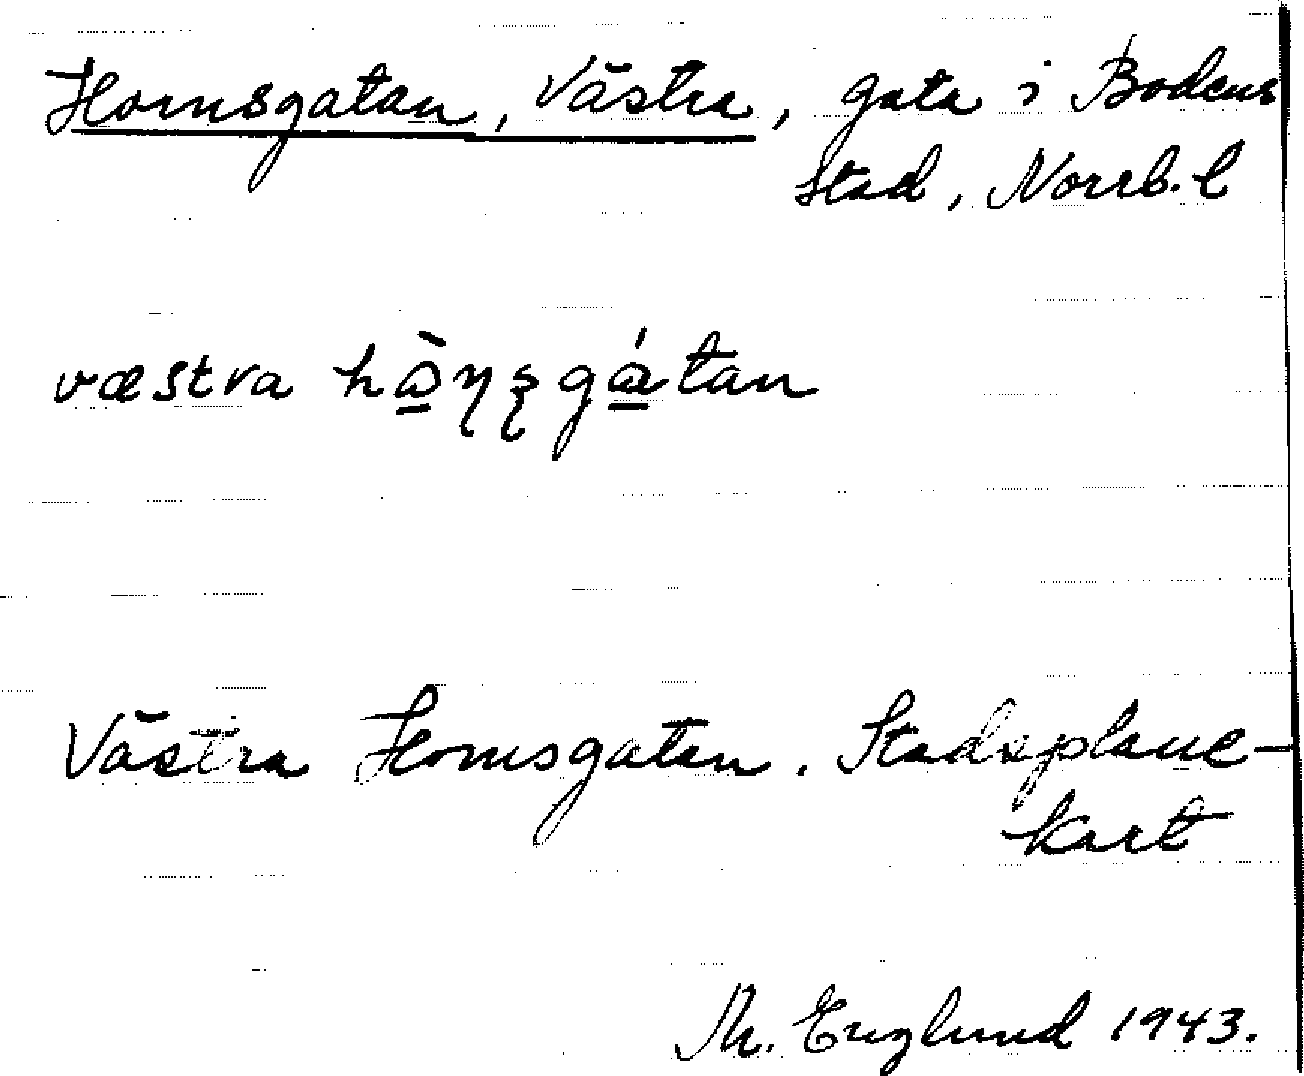 Hornsgatan, Västra, gata i Bodens
stad, Norrb. l
væstra hɷ̠̀ɳʂgɑ̠́tan
Västra Hornsgatan. Stadsplane-
kart
M. Englund 1943.